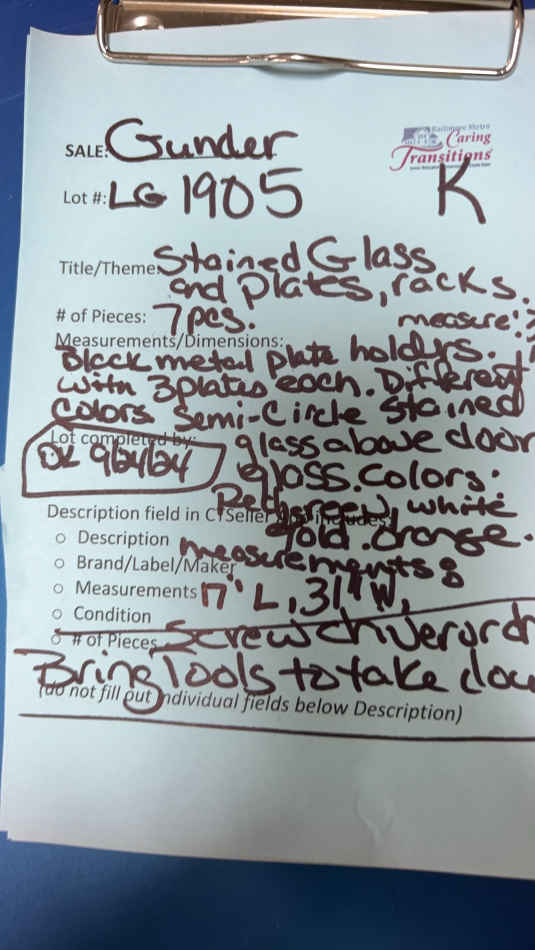 Baltimore Metro
Caring
Transitions
SALE: Gunder
Lot #: LG 1905
K
Title/Theme: Stained Glass
and plates, racks.
# of Pieces: 7 pcs.
measure:
Measurements/Dimensions:
Black metal plate holdyrs.
with 3 plates each. Different
colors Semi-Circle Stained
Lot completed by: glass above door
DL 9/24/24
glass. Colors:
Red, green, white
Description field in CTSeller includes:
gold. Orange.
Description
measurements:
Brand/Label/Maker
Measurements 17" L, 31" W,
Condition
# of Pieces Screw
Bring Tools to take
(do not fill out individual fields below Description)